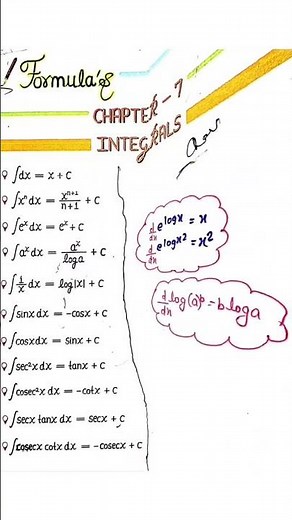 Formula's of
CHAPTER - 7
INTEGRALS
∫dx = x + C
∫xⁿ dx = xⁿ⁺¹/n+1 + C
∫eˣ dx = eˣ + C
∫aˣ dx = aˣ/loga + C
∫1/x dx = log|x| + C
∫sinx dx = -cosx + C
∫cosx dx = sinx + C
∫sec²x dx = tanx + C
∫cosec²x dx = -cotx + C
∫secx tanx dx = secx + C
∫cosecx cotx dx = -cosecx + C
d/dx e^logx = x
d/dx e^logx² = x²
d/dx log(a)ᵇ = b loga